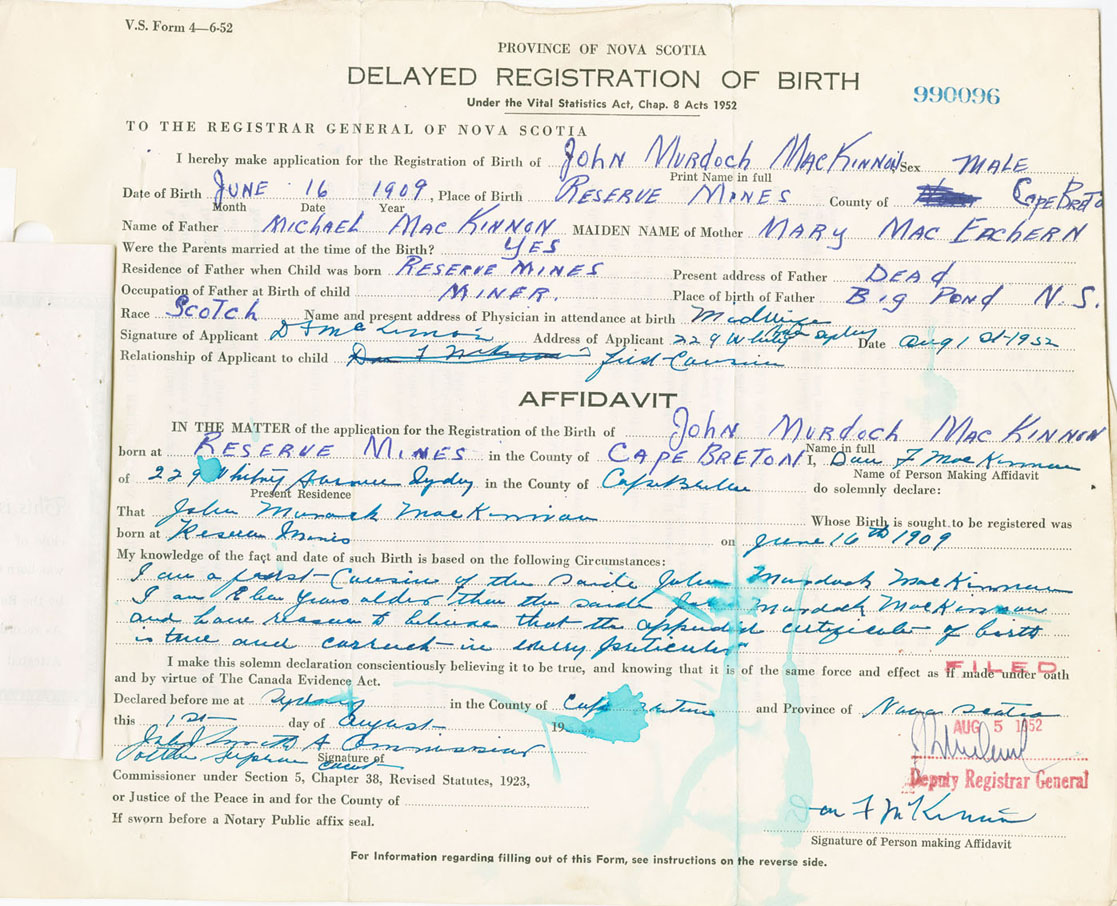 V.S. Form 4—6-52
PROVINCE OF NOVA SCOTIA
DELAYED REGISTRATION OF BIRTH
990096
Under the Vital Statistics Act, Chap. 8 Acts 1952
TO THE REGISTRAR GENERAL OF NOVA SCOTIA
I hereby make application for the Registration of Birth of John Murdoch MacKinnon Sex MALE
Print Name in full
Date of Birth JUNE 16 1909, Place of Birth RESERVE MINES County of Cape Breto
Month Date Year
Name of Father MICHAEL MAC KINNON MAIDEN NAME of Mother MARY MAC EACHERN
Were the Parents married at the time of the Birth? YES
Residence of Father when Child was born RESERVE MINES Present address of Father DEAd
Occupation of Father at Birth of child MINER. Place of birth of Father BIG PONd N.S.
Race Scotch Name and present address of Physician in attendance at birth Midwife
Signature of Applicant D F McKinnon Address of Applicant 229 Whitney Ave Sydney Date Aug 1 St-1952
Relationship of Applicant to child first-Cousin
AFFIDAVIT
IN THE MATTER of the application for the Registration of the Birth of John Murdoch MacKinnon
Name in full
born at RESERVE MINES in the County of CAPE BRETON I, Dan F MacKinnon
Name of Person Making Affidavit
of 229 Whitney Sydney in the County of Cape Breton do solemnly declare:
Present Residence
That John Murdoch MacKinnon Whose Birth is sought to be registered was
born at Reserve Mines on June 16th 1909
My knowledge of the fact and date of such Birth is based on the following Circumstances:
I am a first-Cousin of the saide John Murdoch MacKinnon
I am years older than the saide John Murdoch MacKinnon
and have reason to believe that the appended certificate of birth
is true and correct in every
I make this solemn declaration conscientiously believing it to be true, and knowing that it is of the same force and effect as if made under oath
FILED
and by virtue of The Canada Evidence Act.
Declared before me at Sydney in the County of Cape Breton and Province of Nova Scotia
this 1 St- day of August 19
AUG 5 1952
A Commissioner
of the Supreme Court
Signature of
Deputy Registrar General
Commissioner under Section 5, Chapter 38, Revised Statutes, 1923,
or Justice of the Peace in and for the County of
Dan F McKinnon
If sworn before a Notary Public affix seal.
Signature of Person making Affidavit
For Information regarding filling out of this Form, see instructions on the reverse side.